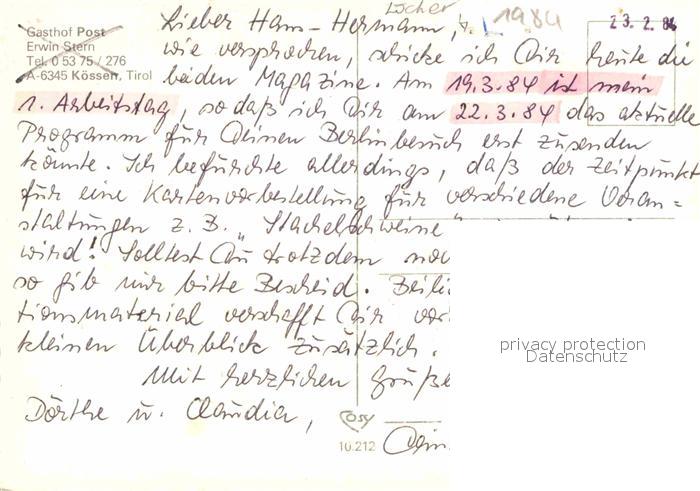 Locher
1984
23.2.84
Gasthof Post
Erwin Stern
Tel. 0 53 75 / 276
A-6345 Kössen, Tirol
Lieber Hans-Hermann,
wie versprochen, schicke ich Dir heute die
beiden Magazine. Am 19.3.84 ist mein
1. Arbeitstag, so daß ich Dir am 22.3.84 das aktuelle
Programm für Deinen Berlinbesuch erst zusenden
könnte. Ich befürchte allerdings, daß der Zeitpunkt
für eine Kartenvorbestellung für verschiedene Veran=
staltungen z.B. "Stachelschweine"
wird! Solltest Du trotzdem
so gib mir bitte Bescheid. Beili
tionsmaterial verschafft Dir
kleinen Überblick zusätzlich.
Mit herzlichen Grüße
Dörthe u. Claudia,
cosy
10.212
privacy protection
Datenschutz